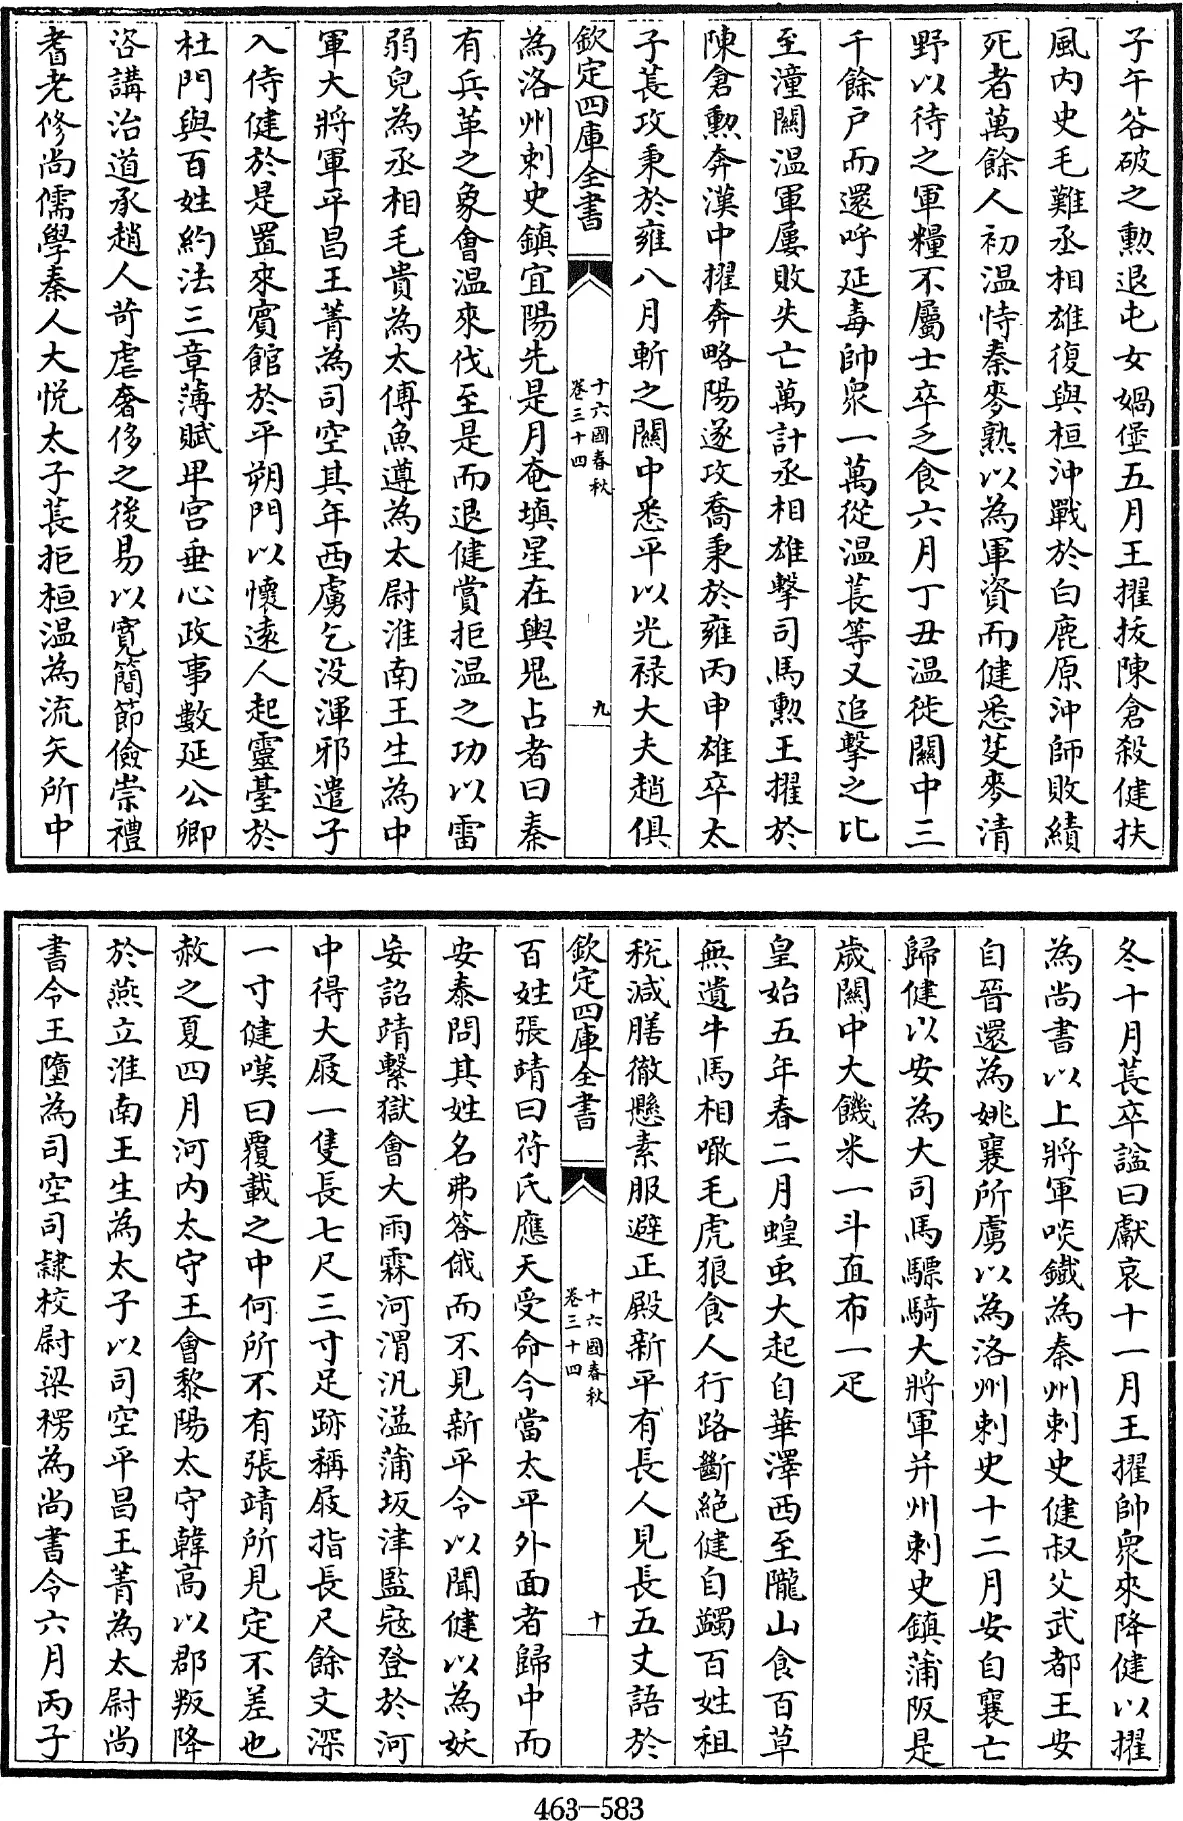 子午谷破之勲退屯女媧堡五月王擢拔陳倉殺健扶
風内史毛難丞相雄復與桓沖戰於白鹿原沖師敗績
死者萬餘人初温恃秦麥熟以為軍資而健悉芟麥清
野以待之軍糧不屬士卒乏食六月丁丑温徙關中三
千餘户而還呼延毒帥衆一萬從温萇等又追擊之比
至潼關温軍屢敗失亡萬計丞相雄擊司馬勲王擢於
陳倉勲奔漢中擢奔略陽遂攻喬秉於雍丙申雄卒太
子萇攻秉於雍八月斬之關中悉平以光禄大夫趙俱
欽定四庫全書
十六國春秋
卷三十四
九
為洛州刺史鎮宜陽先是月奄填星在輿鬼占者曰秦
有兵革之象會温來伐至是而退健賞拒温之功以雷
弱兒為丞相毛貴為太傅魚遵為太尉淮南王生為中
軍大將軍平昌王菁為司空其年西虜乞没渾邪遣子
入侍健於是置來賓館於平朔門以懷遠人起靈臺於
杜門與百姓約法三章薄賦卑宫垂心政事數延公卿
咨講治道承趙人苛虐奢侈之後易以寛簡節儉崇禮
耆老修尚儒學秦人大悦太子萇拒桓温為流矢所中
冬十月萇卒謚曰獻哀十一月王擢帥衆來降健以擢
為尚書以上將軍啖鐵為秦州刺史健叔父武都王安
自晉還為姚襄所虜以為洛州刺史十二月安自襄亡
歸健以安為大司馬驃騎大將軍并州刺史鎮蒲阪是
歳關中大饑米一斗直布一疋
皇始五年春二月蝗虫大起自華澤西至隴山食百草
無遺牛馬相噉毛虎狼食人行路斷絶健自蠲百姓租
税減膳徹懸素服避正殿新平有長人見長五丈語於
欽定四庫全書
十六國春秋
卷三十四
十
百姓張靖曰苻氏應天受命今當太平外面者歸中而
安泰問其姓名弗答俄而不見新平令以聞健以為妖
妄詔靖繫獄會大雨霖河渭汎溢蒲坂津監寇登於河
中得大屐一隻長七尺三寸足跡稱屐指長尺餘文深
一寸健嘆曰覆載之中何所不有張靖所見定不差也
赦之夏四月河内太守王會黎陽太守韓高以郡叛降
於燕立淮南王生為太子以司空平昌王菁為太尉尚
書令王墮為司空司隸校尉梁楞為尚書令六月丙子
463-583